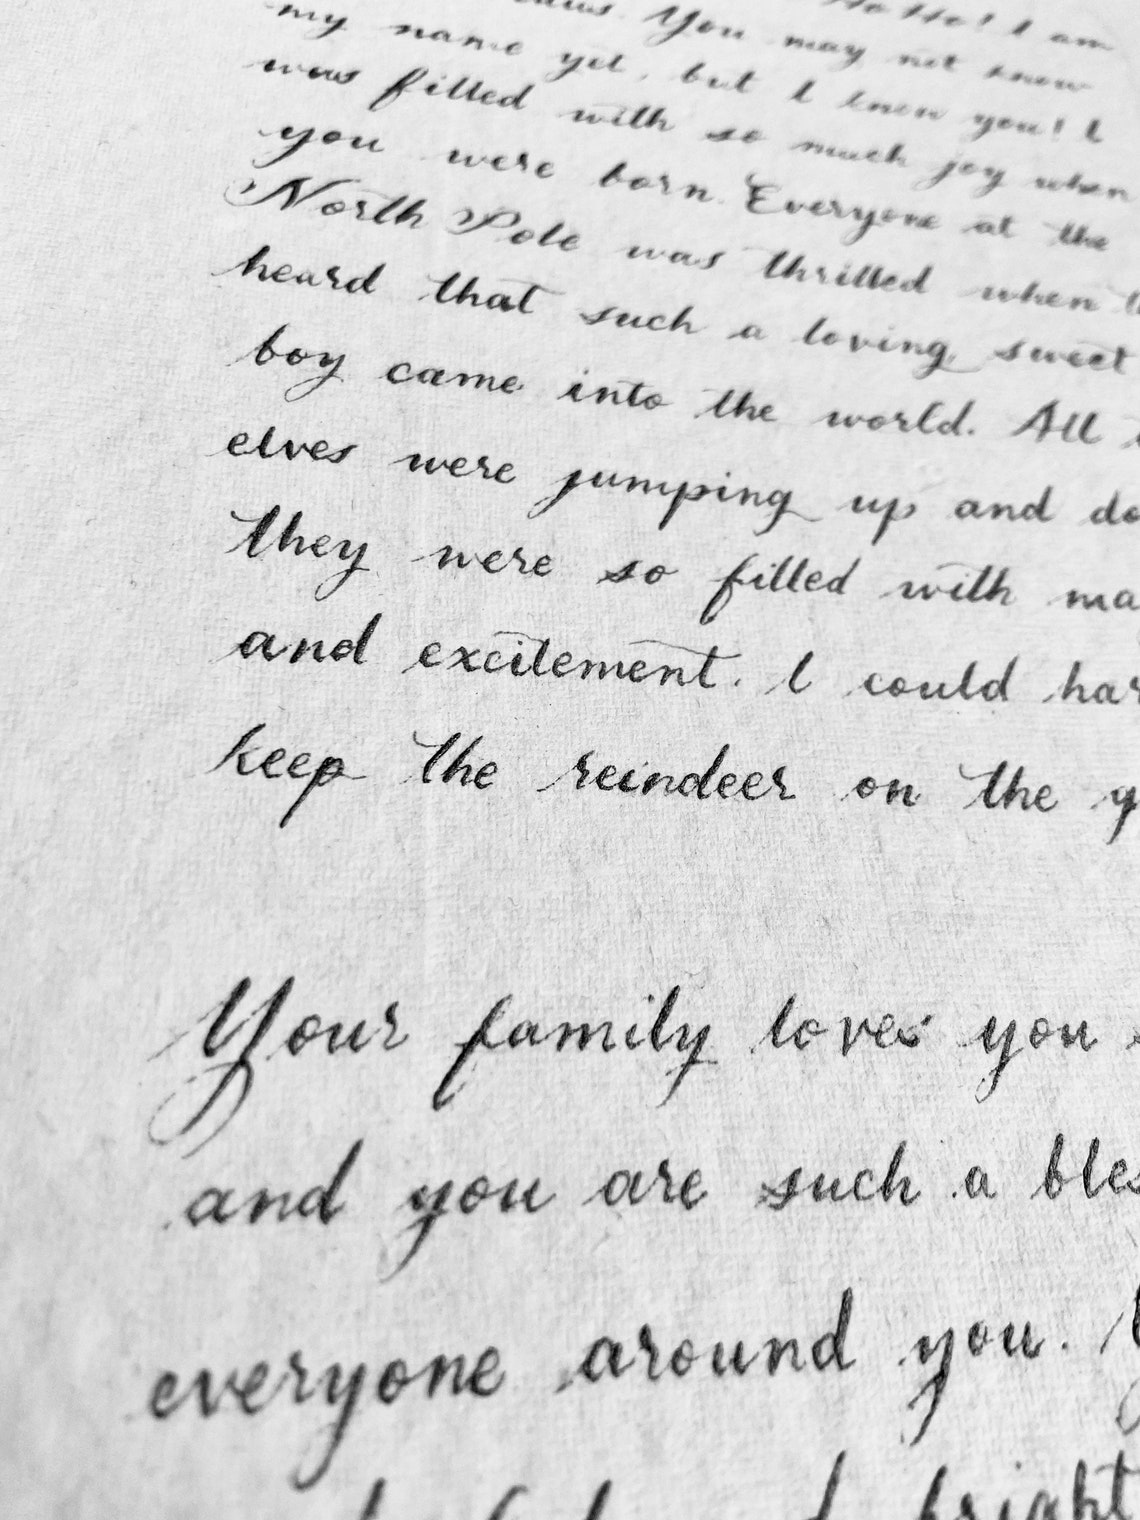 Ho Ho! I am
You may not know
my name yet, but I know you! I
was filled with so much joy when
you were born. Everyone at the
North Pole was thrilled when
heard that such a loving, sweet
boy came into the world. All
elves were jumping up and do
they were so filled with ma
and excitement. I could har
keep the reindeer on the g
Your family loves you
and you are such a bles
everyone around you.
bright